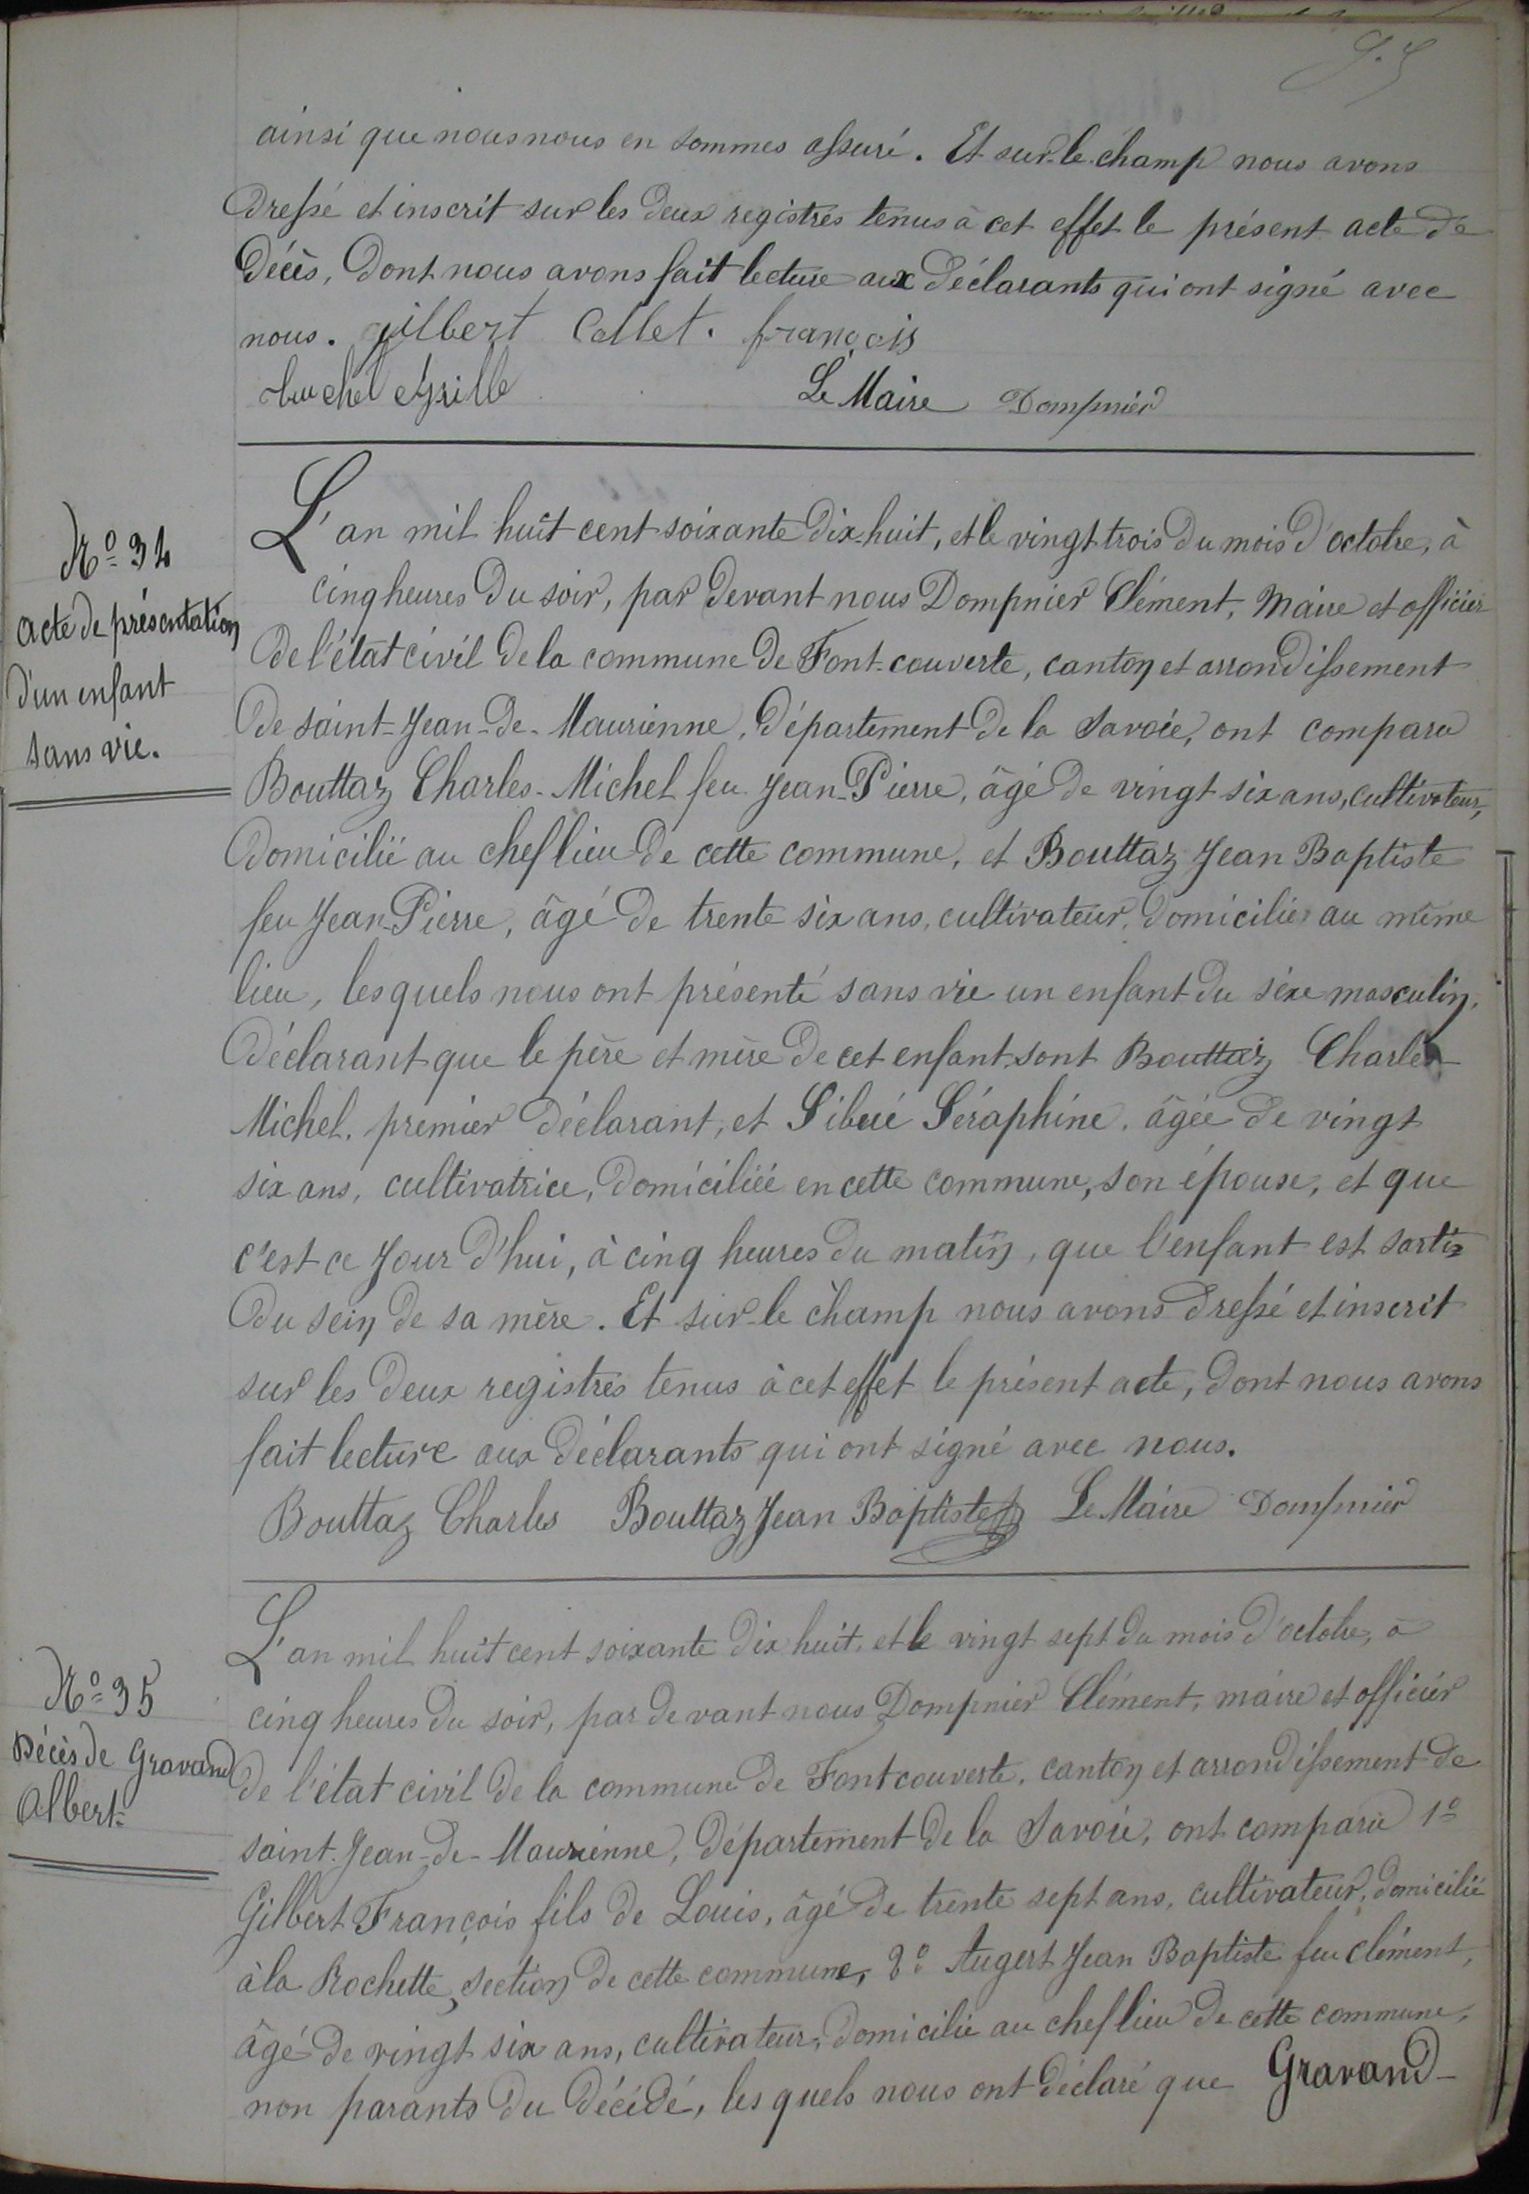 ainsi que nous nous en sommes assuré. Et sur-le-champ nous avons
dressé et inscrit sur les deux registres tenus à cet effet le présent acte de
décès, dont nous avons fait lecture aux déclarants qui ont signé avec
nous. gilbert Collet. françois
Le Maire Dompnier
L'an mil huit cent soixante dix-huit, et le vingt trois du mois d'octobre, à
cinq heures du soir, par devant nous Dompnier Clément, Maire et officier
de l'état civil de la commune de Font-couverte, canton et arrondissement
de saint-Jean-de-Maurienne, département de la Savoie, ont comparu
Bouttaz Charles-Michel feu Jean-Pierre, âgé de vingt six ans, cultivateur,
domicilié au chef lieu de cette commune, et Bouttaz Jean Baptiste
feu Jean-Pierre, âgé de trente six ans, cultivateur, domicilié au même
lieu, lesquels nous ont présenté sans vie un enfant du sexe masculin,
déclarant que le père et mère de cet enfant sont Bouttaz Charles
Michel, premier déclarant, et Sibué Séraphine, âgée de vingt
six ans, cultivatrice, domiciliée en cette commune, son épouse, et que
c'est ce jour d'hui, à cinq heures du matin, que l'enfant est sorti
du sein de sa mère. Et sur-le champ nous avons dressé et inscrit
sur les deux registres tenus à cet effet le présent acte, dont nous avons
fait lecture aux déclarants qui ont signé avec nous.
Bouttaz Charles Bouttaz Jean Baptiste Le Maire Dompnier
L'an mil huit cent soixante dix huit, et le vingt sept du mois d'octobre, à
cinq heures du soir, par devant nous Dompnier Clément, maire et officier
de l'état civil de la commune de Fontcouverte, canton et arrondissement de
saint-Jean-de-Maurienne, département de la Savoie, ont comparu 1º
Gilbert François fils de Louis, âgé de trente sept ans, cultivateur, domicilié
à la Rochette, section de cette commune, 2º Augert Jean Baptiste feu clément,
âgé de vingt six ans, cultivateur, domicilié au chef lieu de cette commune,
non parants du décédé, les quels nous ont déclaré que Gravand-
Nº 34
acte de présentation
d'un enfant
sans vie.
Nº 35
Décès de Gravand
Albert